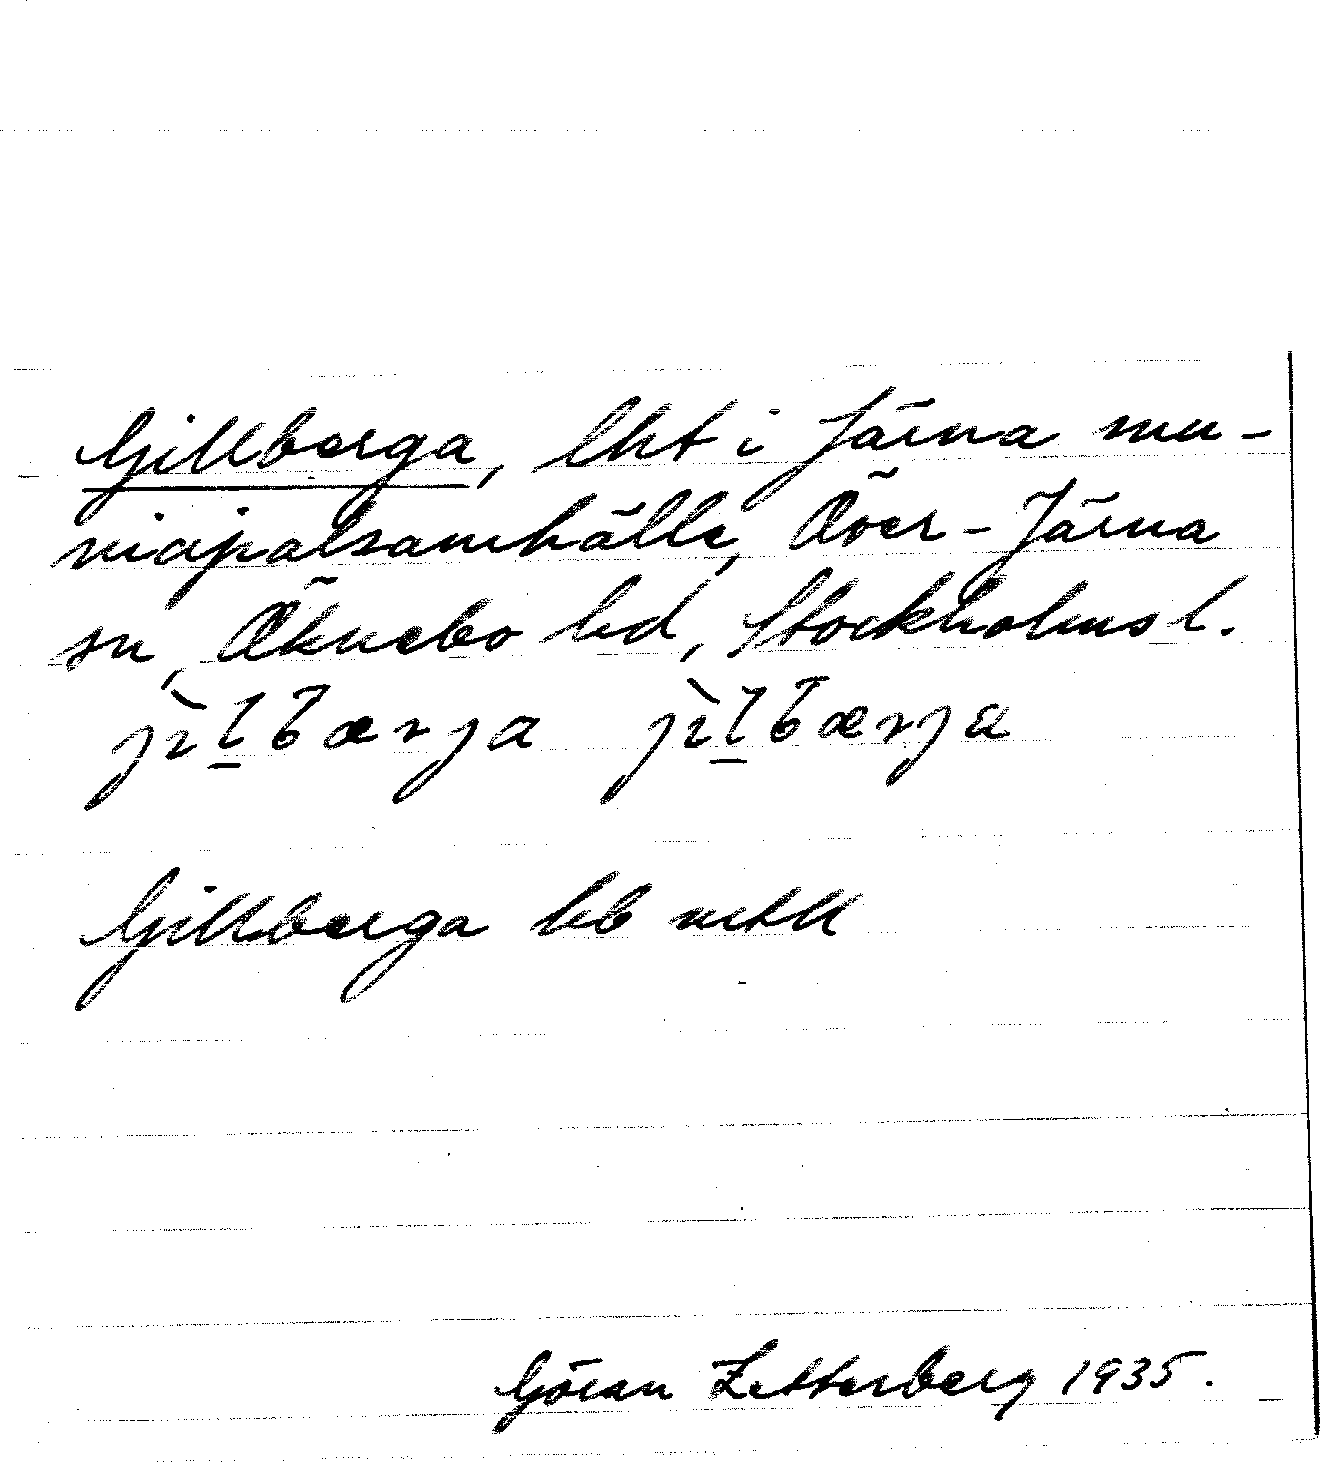 Gillberga, lht i Järna mu-
nicipalsamhälle, Över-Järna
sn, Öknebo hd, Stockholms l.
jìlbærja jìlbærja
Gillberga hb metll
Göran Zetterberg 1935.